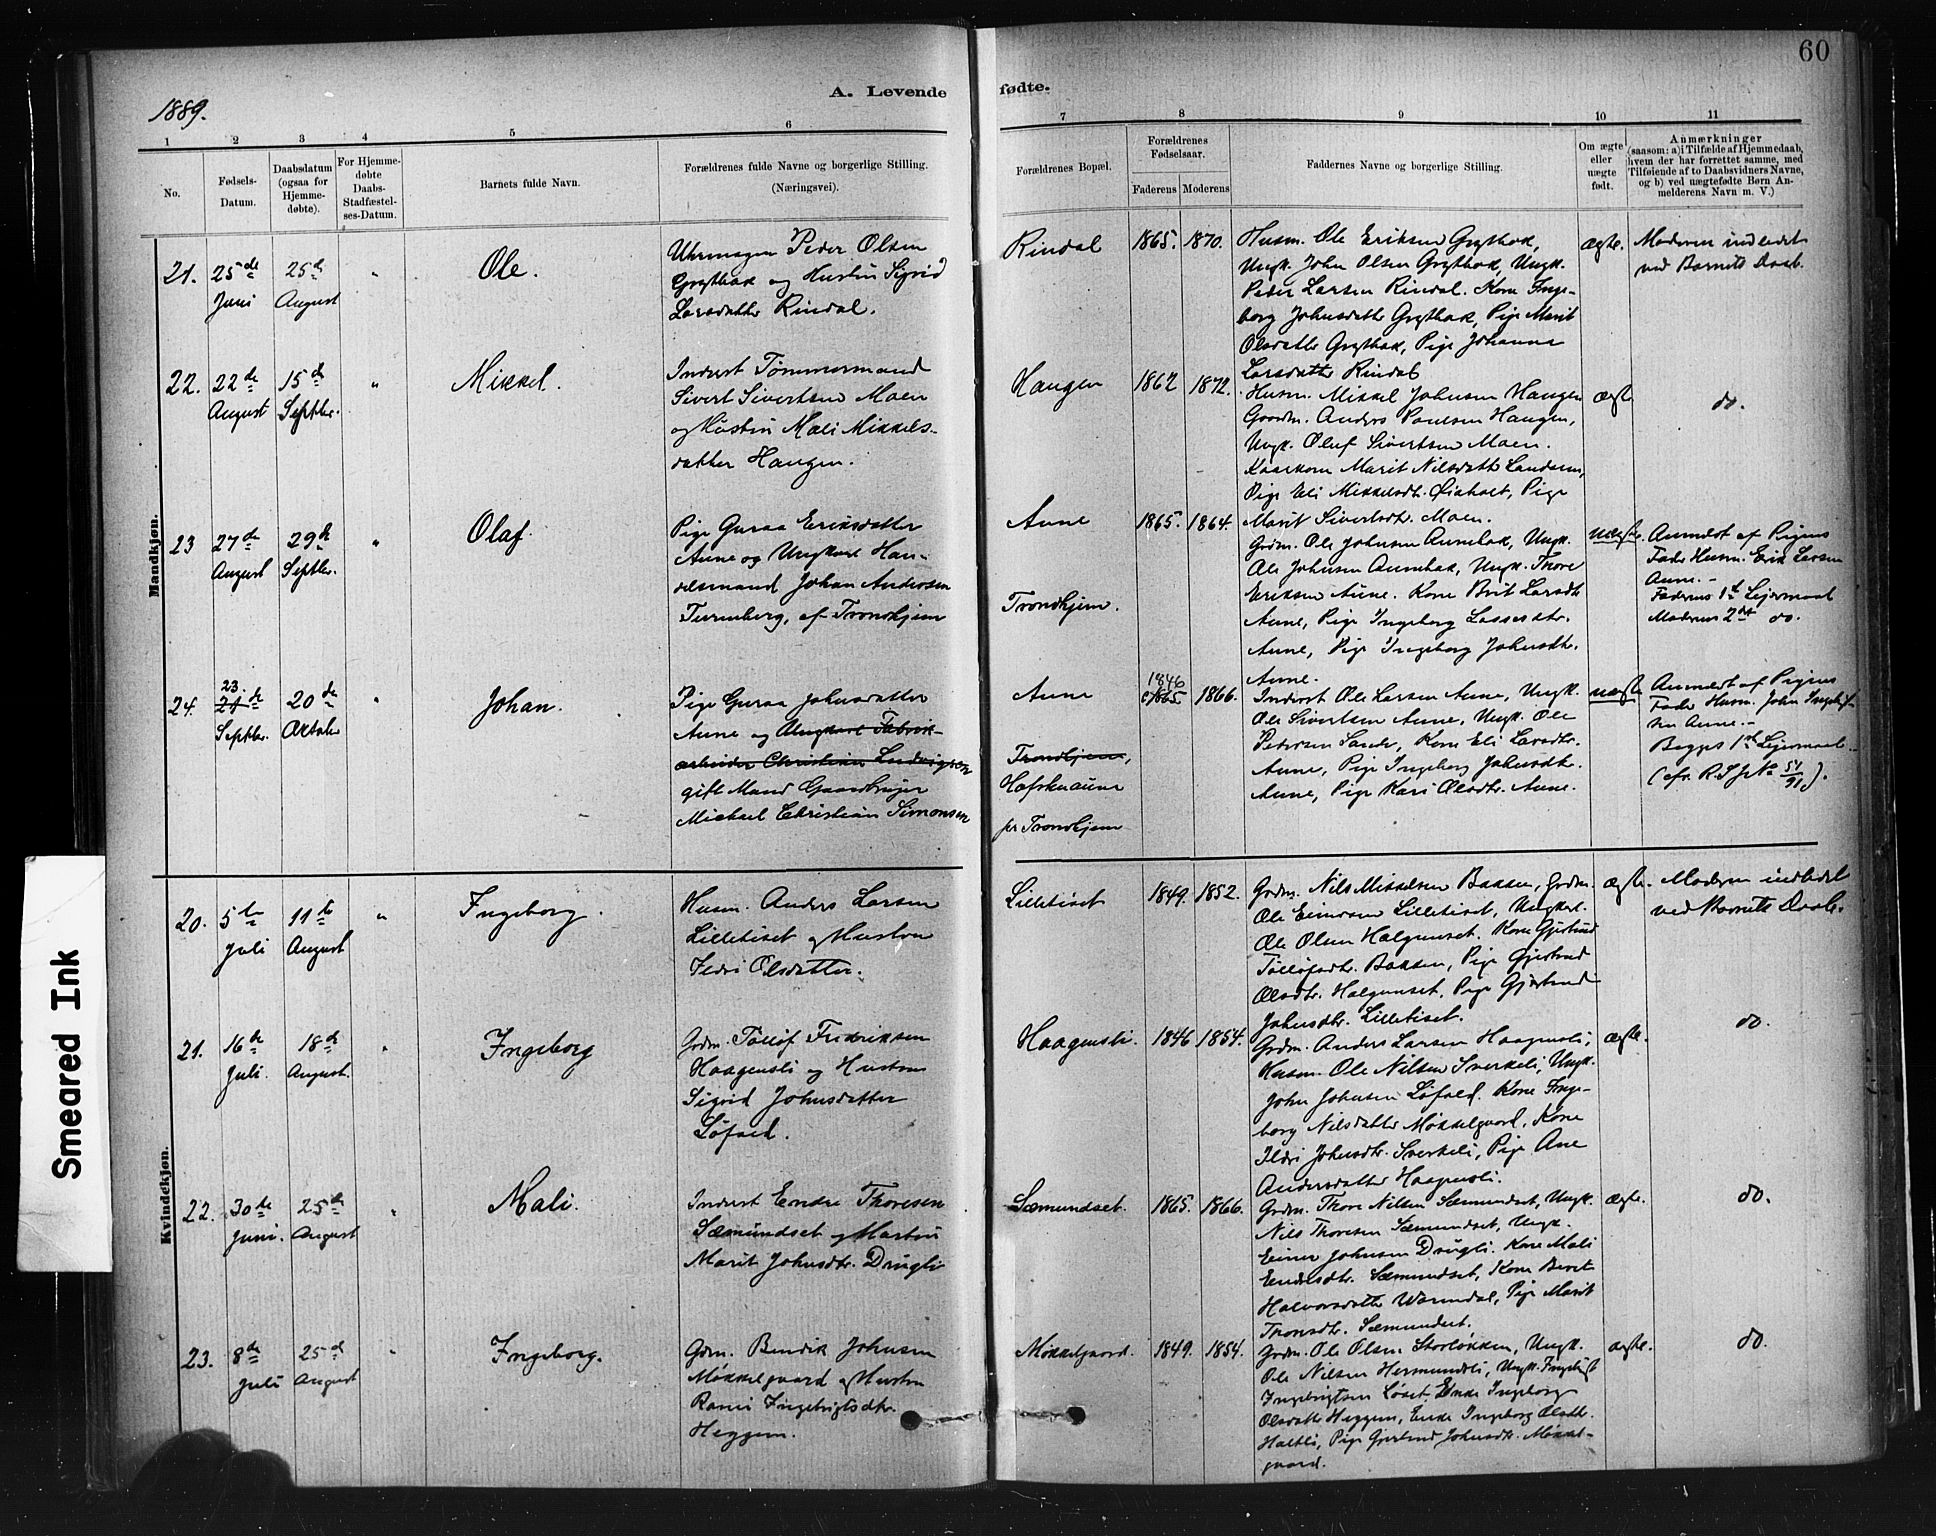 60
1889.
A. Levende fødte.
1 2 3 4 5 6 7 8 9 10 11
No.
Fødsels-Datum.
Daabsdatum (ogsaa for Hjemmedøbte).
For Hjemmedøbte Daabs-Stadfæstelses-Datum.
Barnets fulde Navn.
Forældrenes fulde Navne og borgerlige Stilling. (Næringsvei).
Forældrenes Bopæl.
Forældrenes Fødselsaar.
Faderens Moderens
Faddernes Navne og borgerlige Stilling.
Om ægte eller uægte født.
Anmærkninger
(saasom: a) i Tilfælde af Hjemmedaab,
hvem der har forrettet samme, med
Tilføiende af to Daabsvidners Navne,
og b) ved uægtefødte Børn An-
melderens Navn m. V.)
Mandkjøn.
21. 25de Juni
25de August
"
Ole.
Uhrmager Peder Olsen
Grytbak og Hustru Sigrid
Larsdatter Rindal.
Rindal
1865. 1870.
Husm. Ole Eriksen Grytbak,
Ungk. John Olsen Grytbak, Ungk.
Peder Larsen Rindal. Kone Inge-
borg Johnsdatter Grytbak, Pige Marit
Olsdatter Grytbak, Pige Johanna
Larsdatter Rindal
ægte.
Moderen indledet
ved Barnets Daab.
22. 22de August
15de Septbr.
"
Mikkel.
Inderst Tømmermand
Sivert Sivertsen Moen
og Hustru Mali Mikkels-
datter Haugen.
Haugen
1862 1872.
Husm. Mikkel Johnsen Haugen
Gaardm. Anders Paulsen Haugen,
Ungk. Oluf Sivertsen Moen.
Kaarkone Marit Nilsdatter Landsem,
Pige Eli Mikkelsdtr. Øiaholt, Pige
Marit Sivertsdtr. Moen.
ægte
do.
23 27de August
29de Septbr.
"
Olaf
Pige Guraa Eriksdatter
Aune og Ungkarl Han-
delsmand Johan Andersen
Turenberg, af Trondhjem
Aune
Trondhjem.
1865. 1864.
Grdm. Ole Johnsen Aunebak, Ungk.
Ole Johnsen Aunebak, Ungk. Thore
Eriksen Aune. Kone Brit Larsdtr
Aune, Pige Ingeborg Lassesdtr.
Aune, Pige Ingeborg Johnsdtr.
Aune.
uægte
Anmeldt af Pigens
Fader Husm. Erik Larsen
Aune.-
Faderens 1ste Leiermaal
Moderens 2det do.
24. 23 21de Septbr.
20de Oktober
"
Johan.
Pige Guraa Johnsdatter
Aune og Ungkarl Fabrik-
arbeider Christian Ludvigsen
gift Mand Gaardbruger
Michael Christian Simonsen
Aune
Trondhjem,
pr Trondhjem
1846
1865 1866.
Inderst Ole Larsen Aune, Ungk.
Ole Sivertsen Aune, Ungk. Ole
Petersen Sande, Kone Eli Larsdtr.
Aune, Pige Ingeborg Johnsdtr.
Aune, Pige Kari Olsdtr. Aune.
uægte
Anmeldt af Pigens
Fader Husm. John Ingebrigt-
sen Aune.-
Begges 1ste Leiermaal.
(cfr. R.S. J No 51/91).
Kvindekjøn.
20. 5te Juli
11te August
"
Ingeborg.
Husm. Anders Larsen
Lilletiset og Hustru
Ildri Olsdatter.
Lilletiset
1849. 1852.
Grdm. Nils Mikkelsen Bakken, Grdm.
Ole Einersen Lilletiset, Ungkarl
Ole Olsen Halgunset. Kone Gjertrud
Tøllefsdtr. Bakken, Pige Gjertrud
Olsdtr. Halgunset, Pige Gjertrud
Johnsdtr. Lilletiset.
ægte.
Moderen indledet
ved Barnets Daab.
21. 16de Juli.
18de August.
"
Ingeborg
Grdm. Tøllof Fredriksen
Haagensli og Hustru
Sigrid Johnsdatter
Løfald.
Haagensli.
1846 1854.
Grdm. Anders Larsen Haagensli,
Husm. Ole Nilsen Sverkeli, Ungk.
John Johnsen Løfald. Kone Inge-
borg Nilsdatter Møkkelgaard, Kone
Ildri Johnsdtr. Sverkeli, Pige Ane
Andersdatter Haagensli.
ægte.
do.
22. 30te Juni.
25de August
"
Mali.
Inderst Endre Thoresen
Sæmundset og Hustru
Marit Johnsdtr. Drugli
Sæmundset.
1865. 1866.
Grdm. Thore Nilsen Sæmundset, Ungk.
Nils Thoresen Sæmundset, Ungk.
Einer Johnsen Drugli. Kone Mali
Endresdtr. Sæmundset, Kone Beret
Halvorsdatter Warmdal, Pige Marit
Thoresdtr. Sæmundset.
ægte.
do.
23. 8de Juli
25de August
"
Ingeborg.
Grdm. Bendik Johnsen
Møkkelgaard og Hustru
Ranei Ingebrigtsdtr.
Heggem.
Møkkelgaard.
1849. 1854.
Grdm. Ole Olsen Storløkken, Ungk.
Ole Nilsen Hermundsli, Ungk. Ingebrigt
Ingebrigtsen Løset Enke Ingeborg
Olsdatter Heggem, Enke Ingeborg Olsdtr.
Holtli, Pige Gjertrud Johnsdtr. Møkkel-
gaard.
ægte.
do.
Smeared Ink